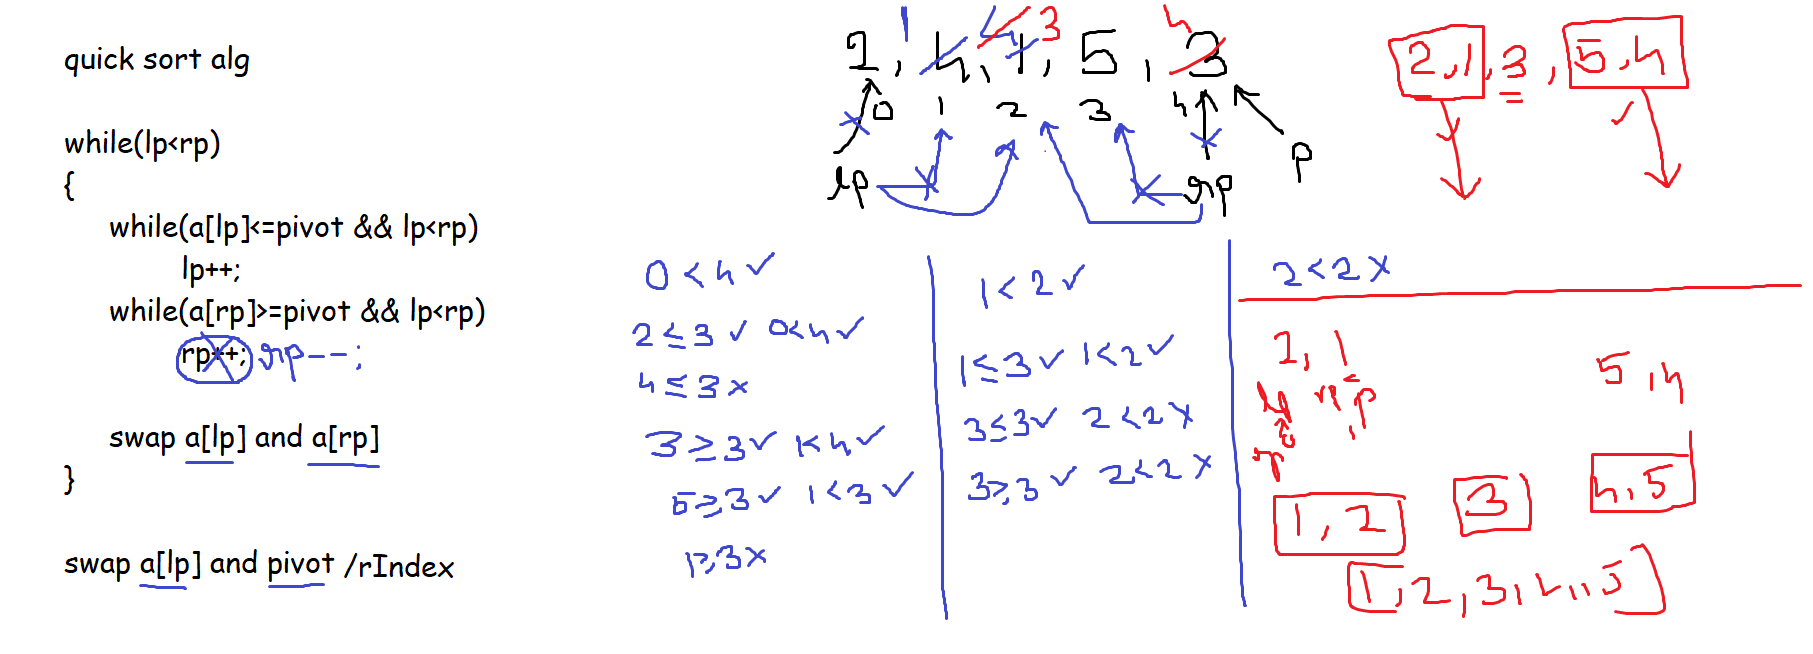 quick sort alg
while(lp<rp)
{
while(a[lp]<=pivot && lp<rp)
lp++;
while(a[rp]>=pivot && lp<rp)
rp++; rp--;
swap a[lp] and a[rp]
}
swap a[lp] and pivot /rIndex
1 4 3 4
2, 4, 1, 5, 3
0 1 2 3 4
lp rp p
0<4 ✓
2≤3 ✓ 0<4 ✓
4≤3 ×
3≥3 ✓ 1<4 ✓
5≥3 ✓ 1<3 ✓
1≥3 ×
1<2 ✓
1≤3 ✓ 1<2 ✓
3≤3 ✓ 2<2 ×
3≥3 ✓ 2<2 ×
2<2 ×
2,1,3,5,4
2,1 5,4
lp rp p
0
rp
1,2 3 4,5
1,2,3,4,5